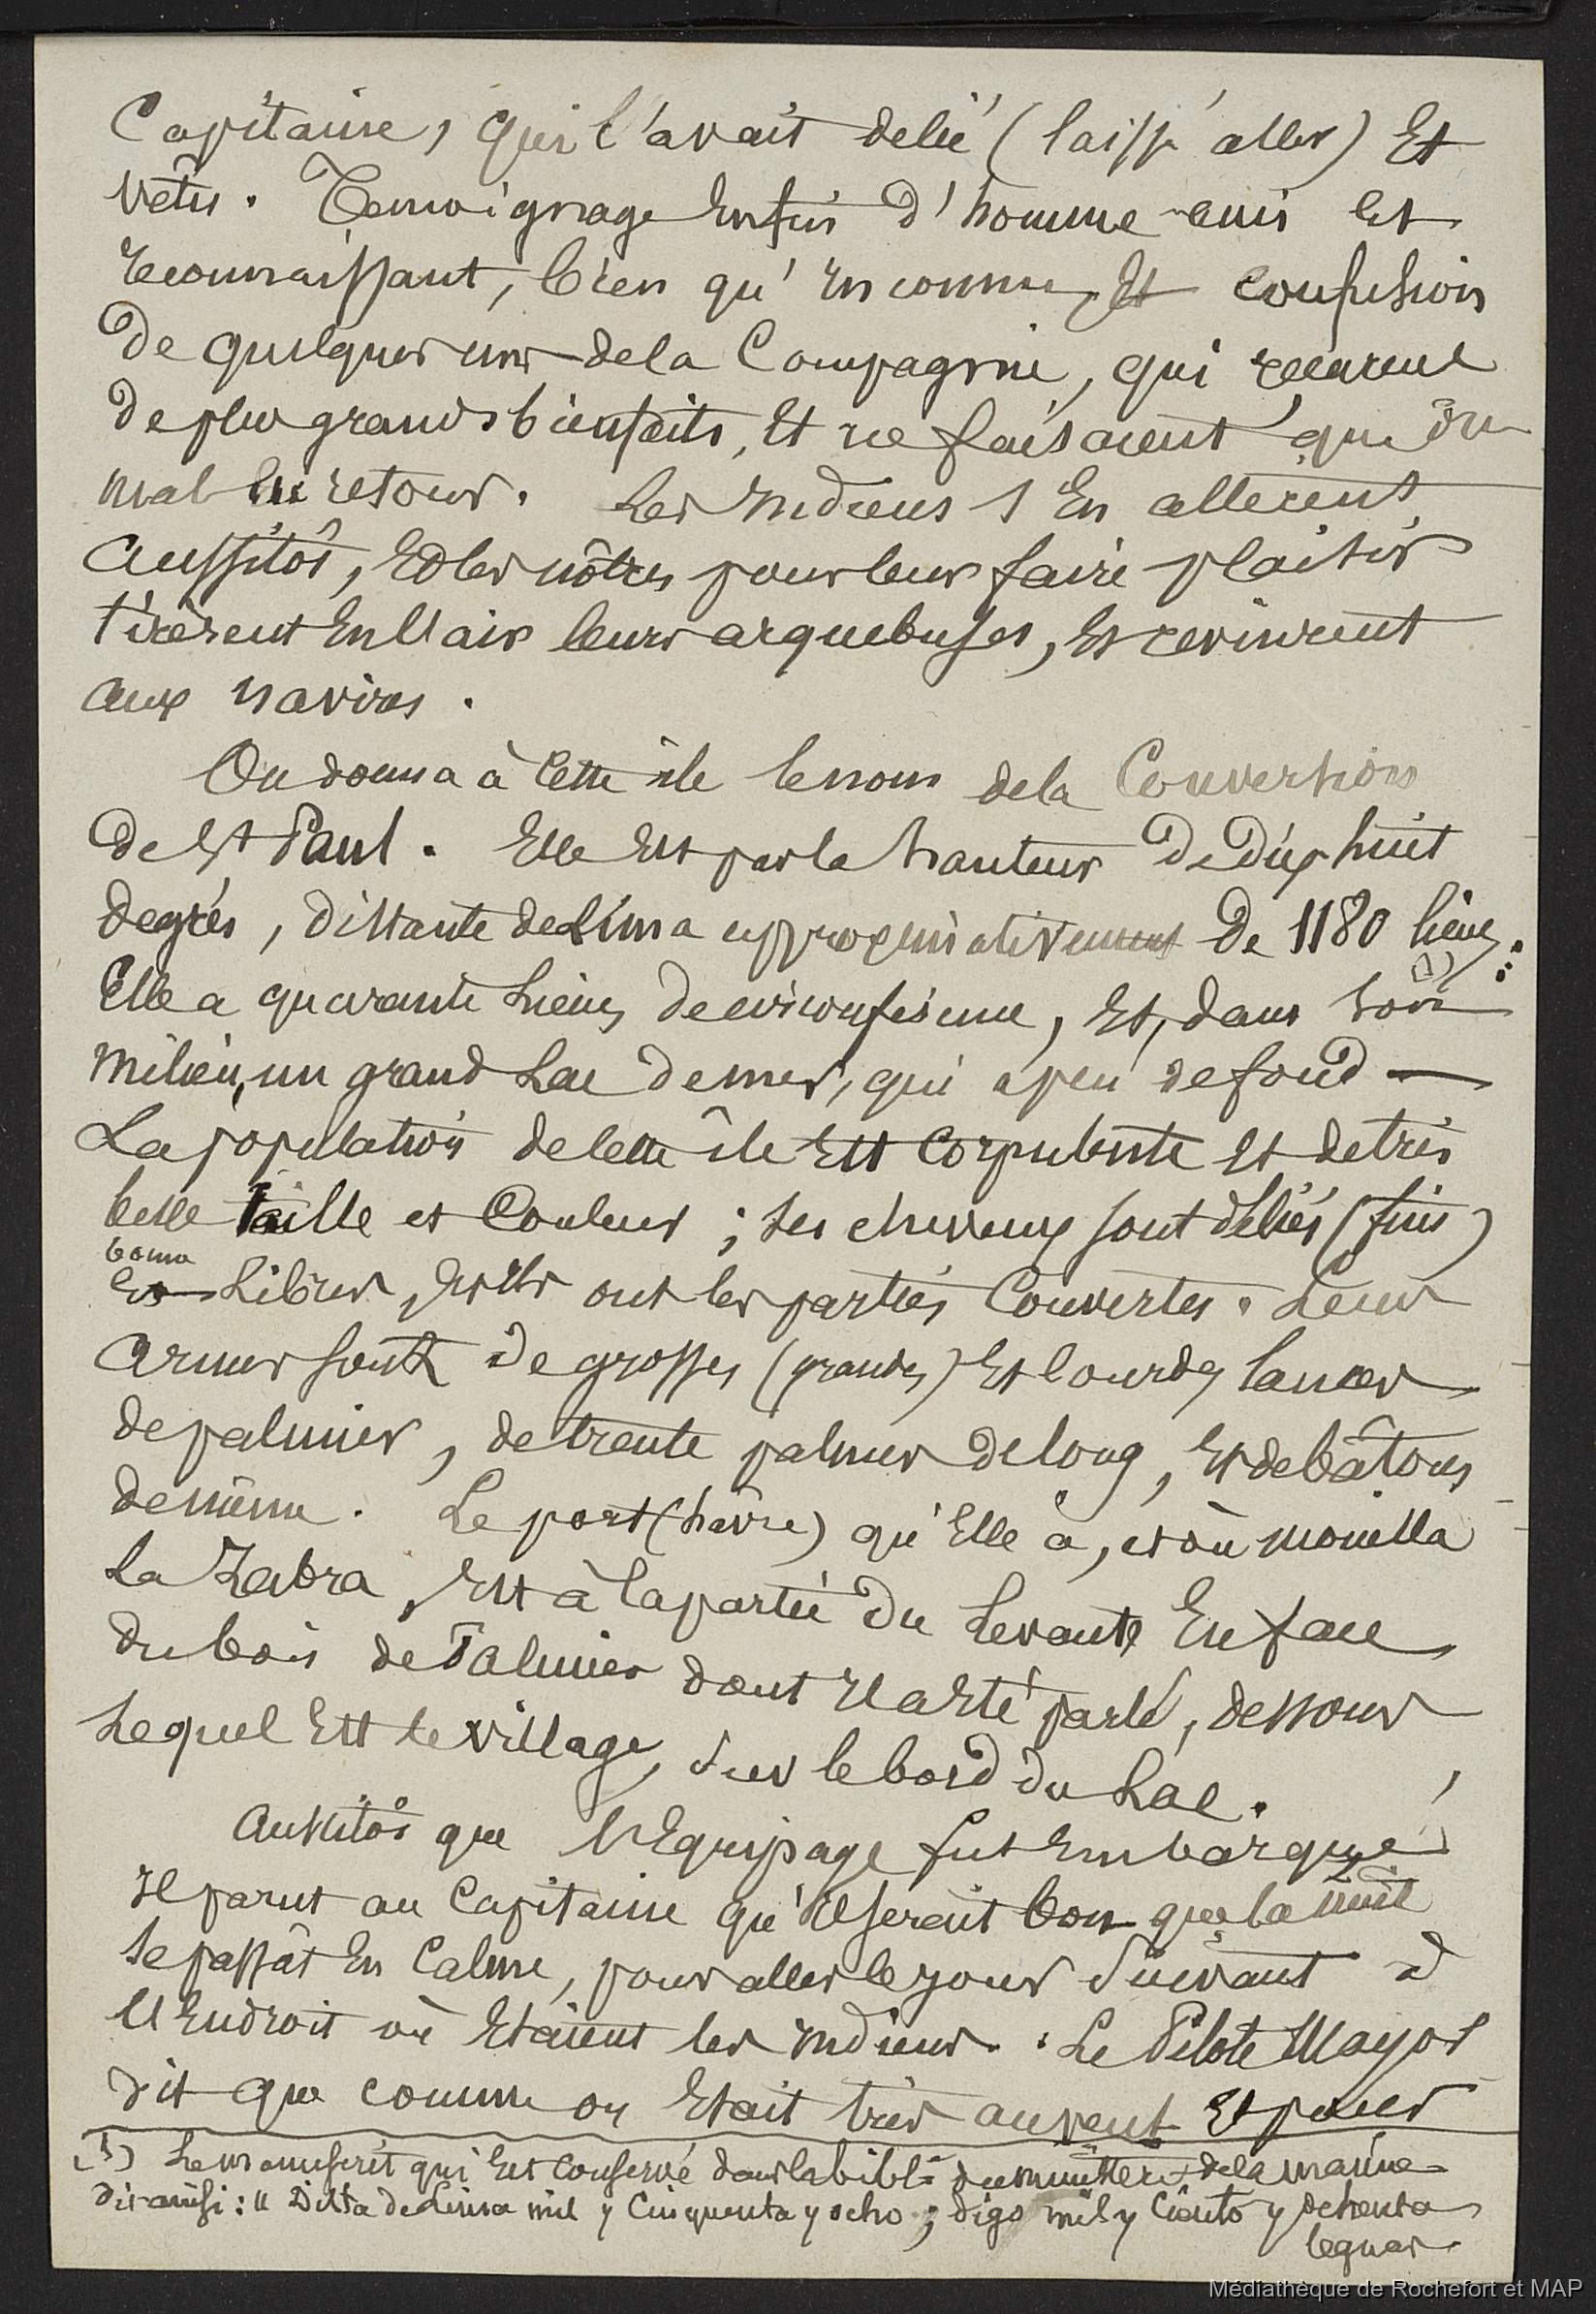 Capitaine, qui l'avait delié (laissé aller) Et
vêtu. Temoignage Enfin d'homme ami et
reconnaissant, bien qu'inconnu, Et confusion
De quelques uns de la Compagnie, qui reçurent
De plus grands bienfaits, Et ne faisaient que du
mal En retour. Les Indiens s'En allèrent
Aussitôt, Et les nôtres pour leur faire plaisir
tirèrent En l'air leurs arquebuses, Et revinrent
aux navires.
On donna à Cette île le nom de la Conversion
De St Paul. Elle Est par la hauteur De Dix huit
degrés, distante de Lima approximativement De 1180 lieues:
(1)
Elle a quarante lieues de circonférence, Et, dans son
milieu, un grand Lac de mer, qui a peu de fond —
La population de cette île Est Corpulente Et de très
belle taille et Couleur; ses cheveux sont déliés (fins)
bona
Et Libres, Et ils ont les parties Couvertes. Leurs
armes sont De grosses (grandes) Et lourdes lances
de palmier, de trente palmes de long, Et de bâtons
de même. Le port (hâvre) qu'Elle a, et où mouilla
La Zabra, Est à la partie Du Levant En face
du bois de Palmier dont Il a Eté parlé, dessous
Lequel Est le village, sur le bord du Lac.
Aussitôt que l'Equipage fut Embarqué
Il parut au Capitaine qu'Il serait bon que la nuit
se passât En Calme, pour aller le jour Suivant à
l'Endroit où Etaient les Indiens. Le Pilote Mayor
dit que comme on Etait très au vent Et pour
(1) Le manuscrit qui Est Conservé dans la bibl= du ministère de la marine
dit ainsi: " Dista de Lima mil y Cinquenta y ocho; digo mil y Ciento y Ochenta
leguas.
Médiathèque de Rochefort et MAP